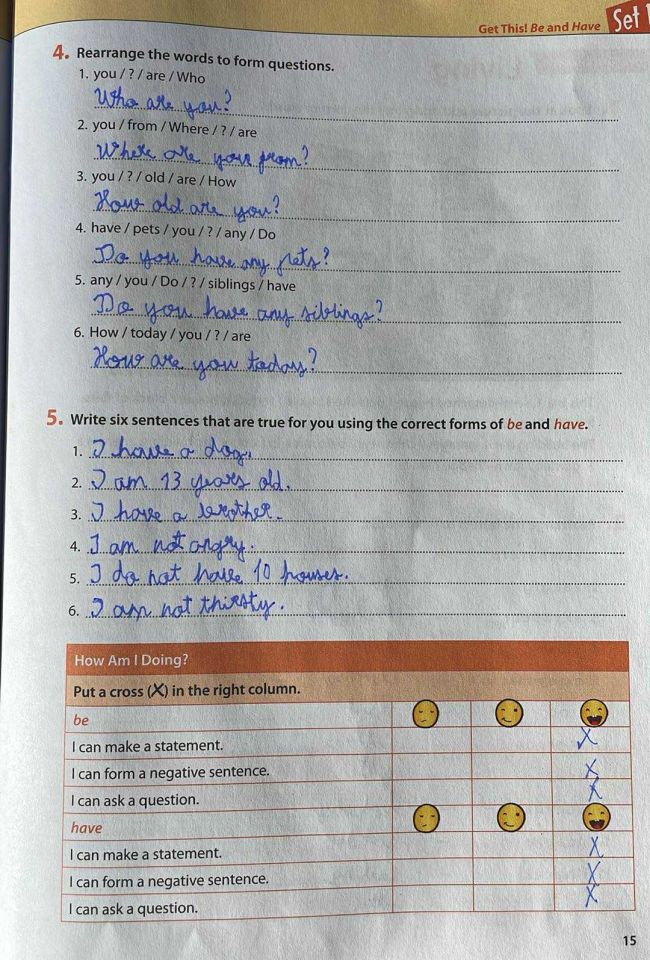 Get This! Be and Have Set 1
4. Rearrange the words to form questions.
1. you / ? / are / Who
Who are you?
2. you / from / Where / ? / are
Where are you from?
3. you / ? / old / are / How
How old are you?
4. have / pets / you / ? / any / Do
Do you have any pets?
5. any / you / Do / ? / siblings / have
Do you have any siblings?
6. How / today / you / ? / are
How are you today?
5. Write six sentences that are true for you using the correct forms of be and have.
1. I have a dog.
2. I am 13 years old.
3. I have a brother.
4. I am not angry.
5. I do not have 10 houses.
6. I am not thirsty.
How Am I Doing?
Put a cross (X) in the right column.
be
I can make a statement. X
I can form a negative sentence. X
I can ask a question. X
have
I can make a statement. X
I can form a negative sentence. X
I can ask a question. X
15